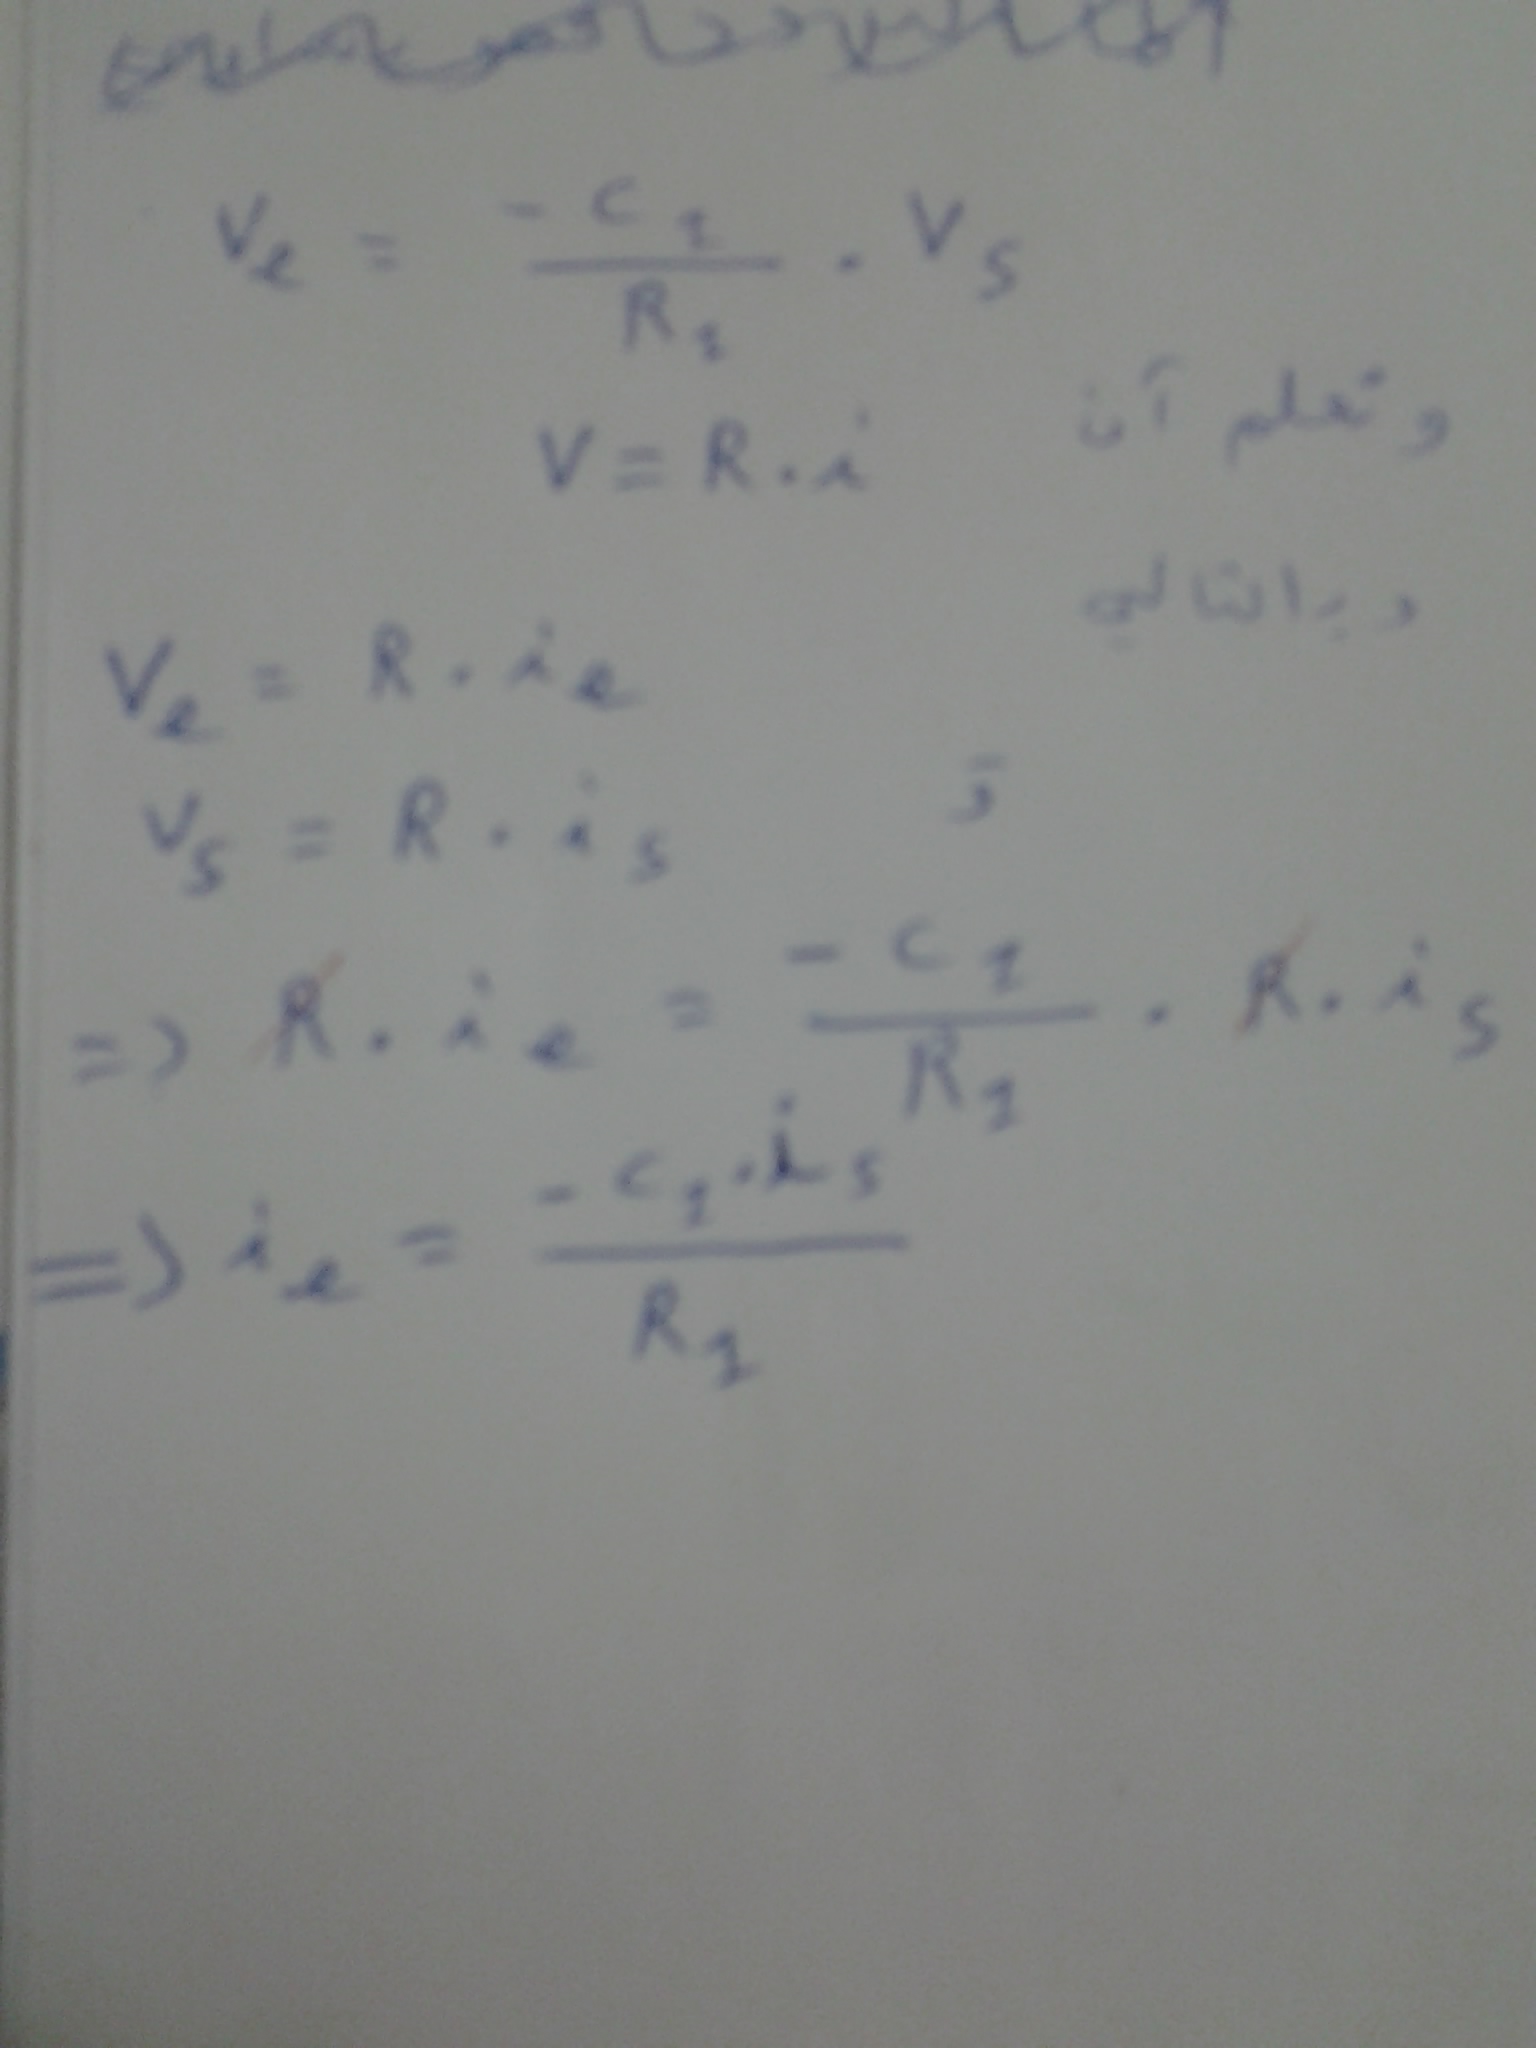 Ve = - C1 / R1 . Vs
و تعلم آن V = R . i
و بالتالي
Ve = R . ie
و Vs = R . is
=> R . ie = - C1 / R1 . R . is
=> ie = - C1 . is / R1